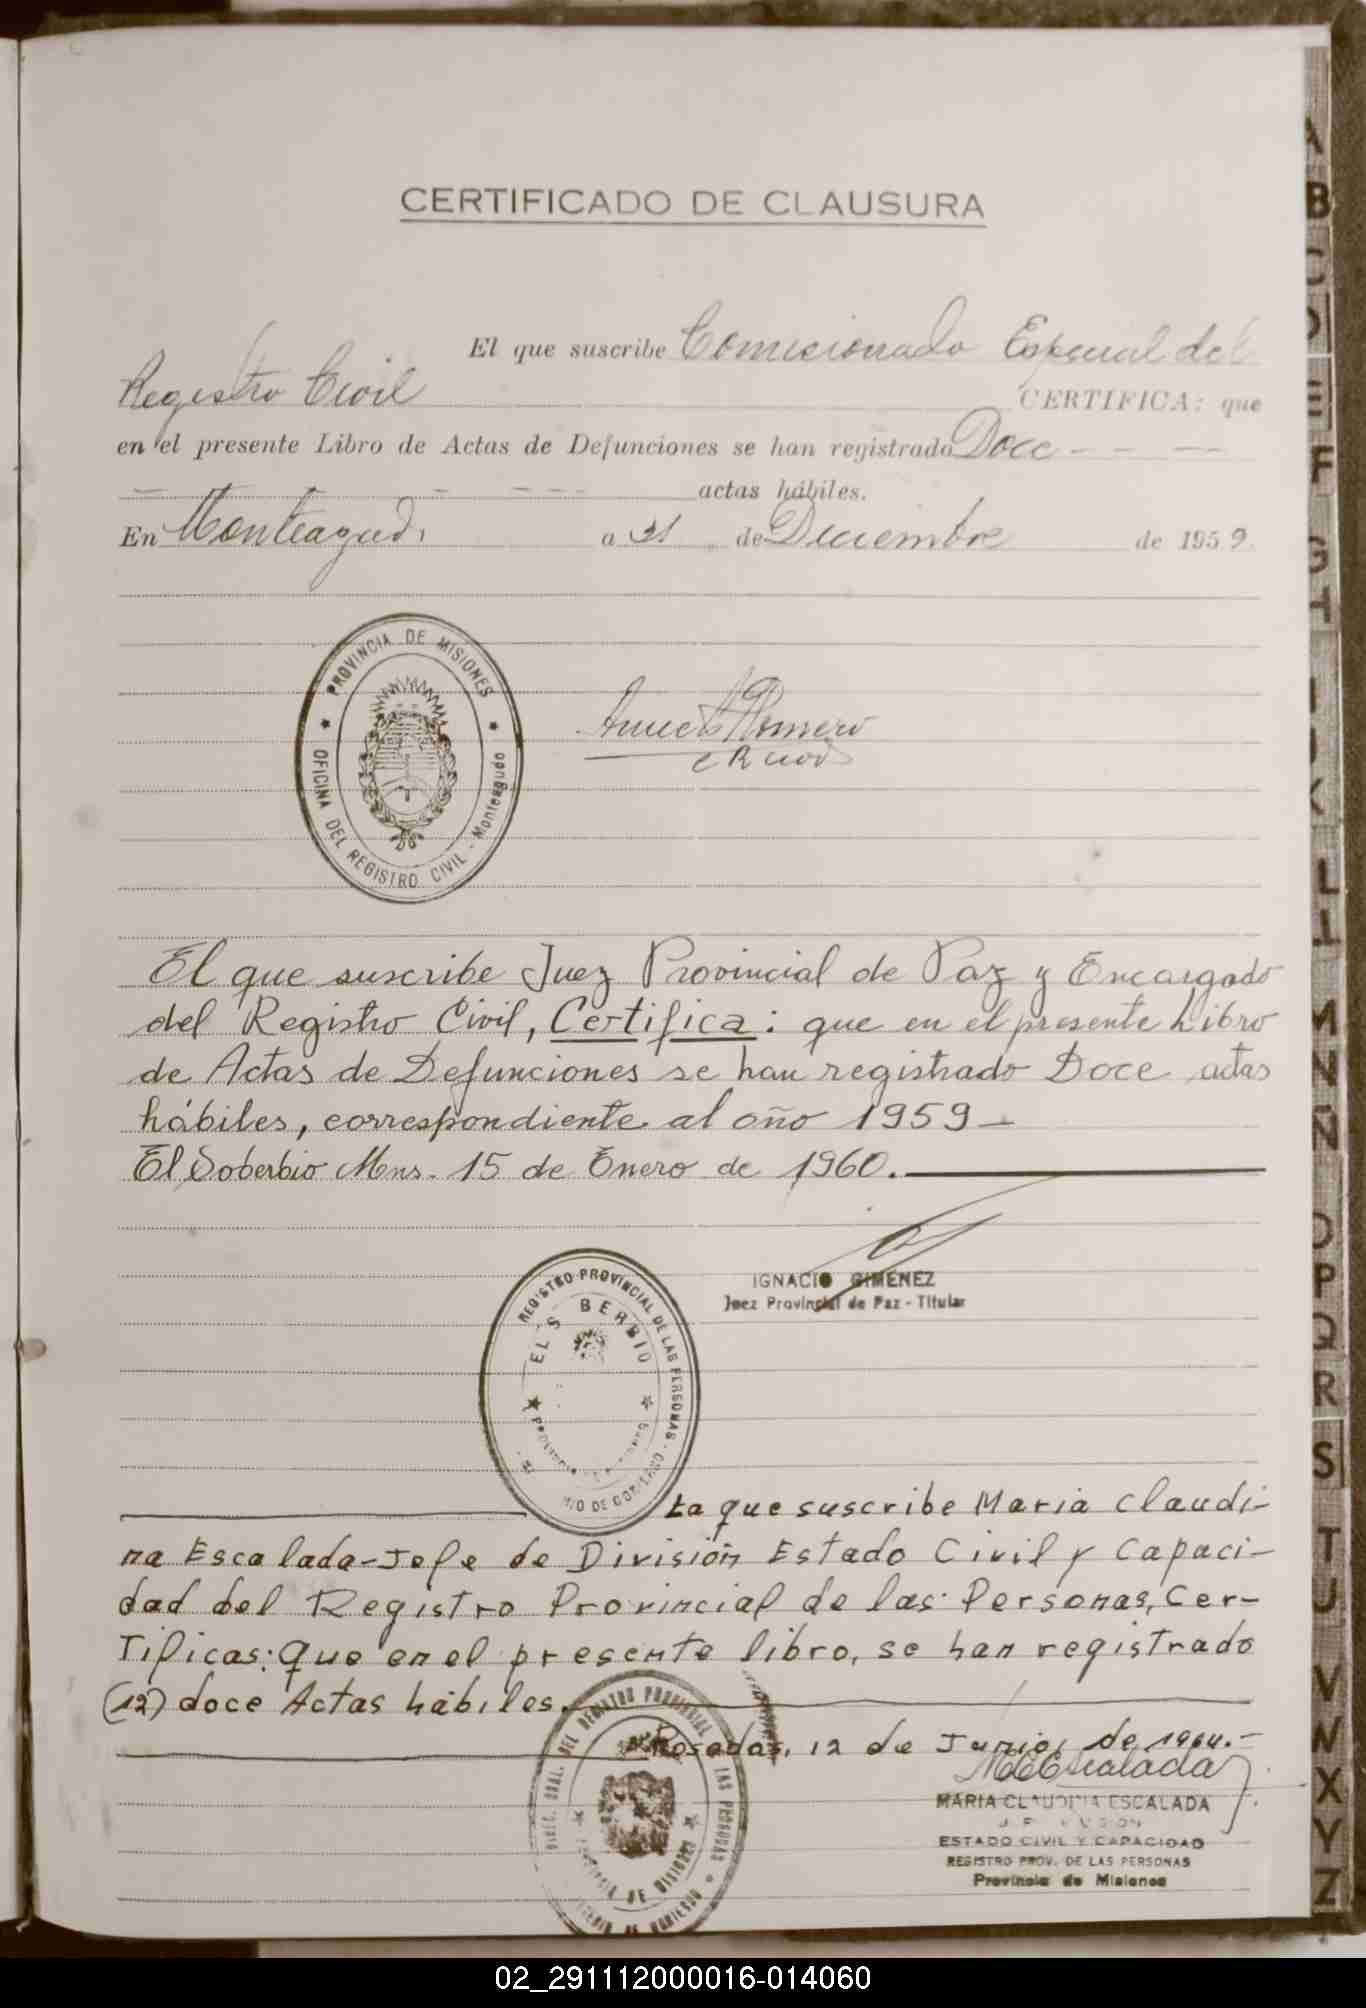 CERTIFICADO DE CLAUSURA
El que suscribe Comisionado Especial del
Registro Civil CERTIFICA: que
en el presente Libro de Actas de Defunciones se han registrado Doce - - - -
- - - - - actas hábiles.
En Monteagudo a 31 de Diciembre de 1959.
PROVINCIA DE MISIONES
OFICINA DEL REGISTRO CIVIL - Monteagudo
Romero
El que suscribe Juez Provincial de Paz y Encargado
del Registro Civil, Certifica: que en el presente Libro
de Actas de Defunciones se han registrado Doce actas
hábiles, correspondiente al año 1959 -
El Soberbio Mns. 15 de Enero de 1960.
IGNACIO GIMENEZ
Juez Provincial de Paz - Titular
REGISTRO PROVINCIAL DE LAS PERSONAS
EL S BERBIO
La que suscribe Maria Claudi-
na Escalada-Jefe de División Estado Civil y Capaci-
dad del Registro Provincial de las Personas, Cer-
Tificas: que en el presente libro, se han registrado
(12) doce Actas hábiles.
Posadas, 12 de Junio, de 1964.-
MCEscalada
MARIA CLAUDINA ESCALADA
ESTADO CIVIL Y CAPACIDAD
REGISTRO PROV. DE LAS PERSONAS
Provincia de Misiones
DIREC. GRAL. DEL REGISTRO PROVINCIAL LAS PERSONAS
PROVINCIA DE MISIONES
A
B
C
D
E
F
G
H
I
J
K
L
LL
M
N
Ñ
O
P
Q
R
S
T
U
V
W
X
Y
Z
02_291112000016-014060